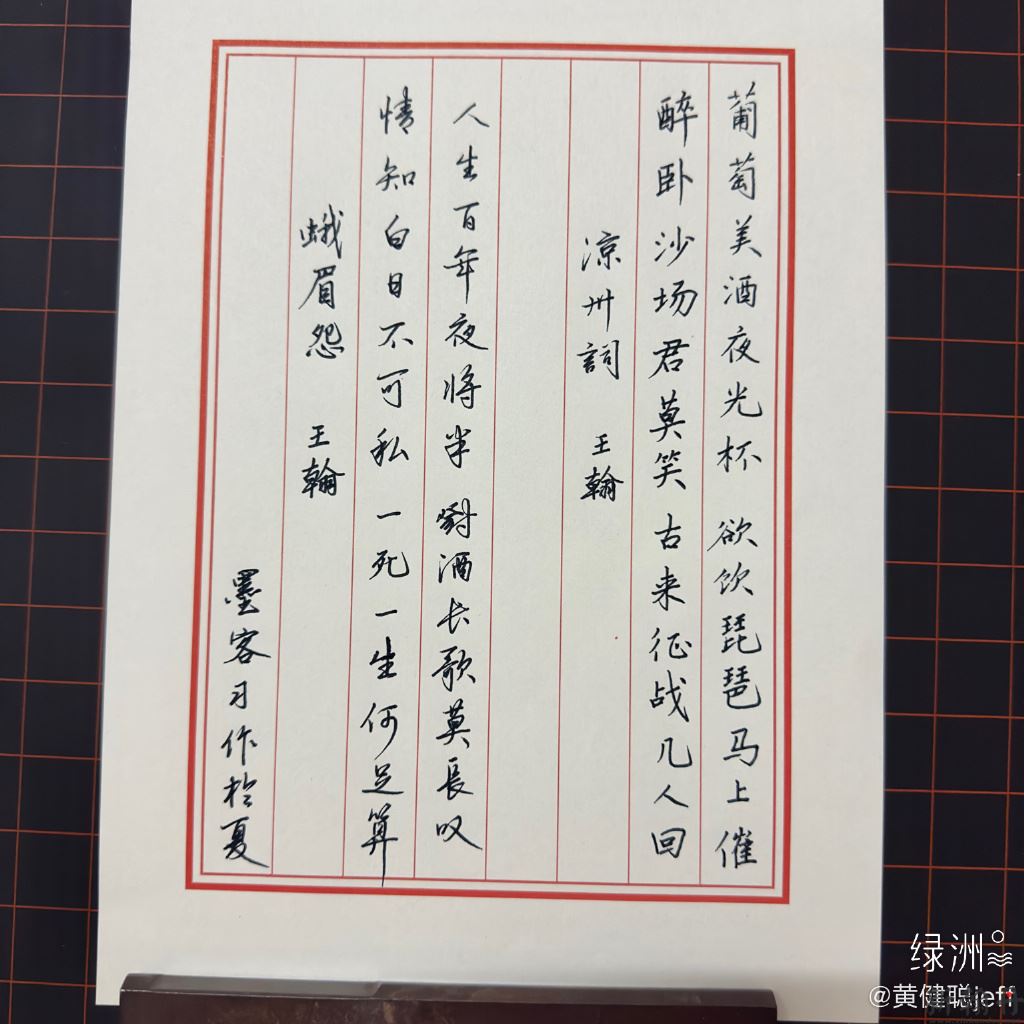 葡萄美酒夜光杯 欲饮琵琶马上催
醉卧沙场君莫笑 古来征战几人回
凉州詞 王翰
人生百年夜将半 對酒长歌莫長叹
情知白日不可私 一死一生何足算
蛾眉怨 王翰
墨客习作於夏
绿洲
@黄健聪jeff